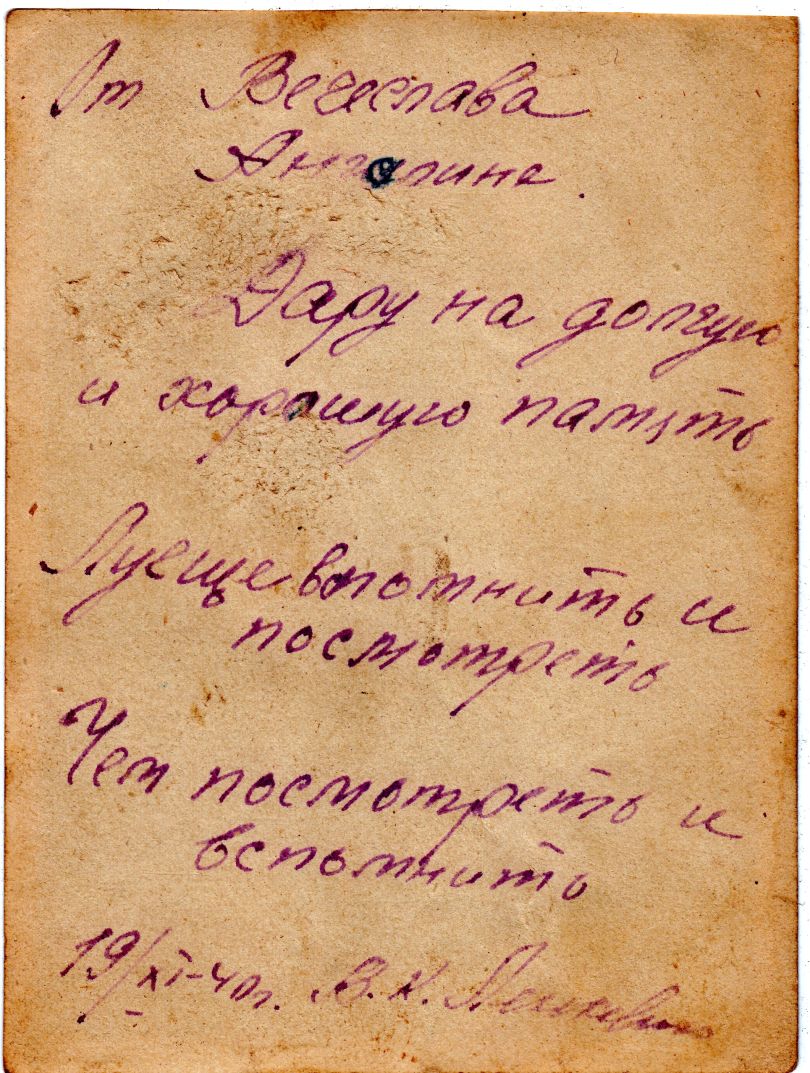 От Вечеслава
Ангелине.
Дару на долгую
и хорошую память
Лучще впомнить и
посмотреть
Чем посмотреть и
вспомнить
19/XI-40г. В. К.